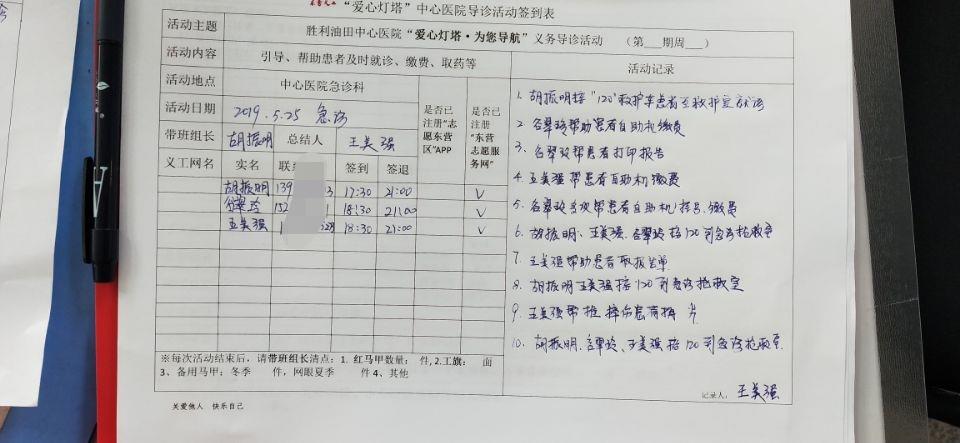 “爱心灯塔”中心医院导诊活动签到表
活动主题 胜利油田中心医院“爱心灯塔·为您导航”义务导诊活动 (第 期周 )
活动内容 引导、帮助患者及时就诊、缴费、取药等 活动记录
活动地点 中心医院急诊科
活动日期 2019.5.25 急诊 是否已注册“志愿东营区”APP 是否已注册“东营志愿服务网”
带班组长 胡振明 总结人 王美强
义工网名 实名 联 签到 签退
胡振明 139 3 17:30 21:00 √
翠玲 152 1 18:30 21:00 √
王美强 1 18:30 21:00 √
1. 胡振明接“120”救护车患者至救护室
2 翠玲帮助患者自助机缴费
3. 翠玲帮患者打印报告
4. 王美强帮患者自助机缴费
5. 翠玲 帮患者自助机挂号.缴费
6. 胡振明、王美强、翠玲接120到急诊抢救室
7. 王美强帮助患者取报告单
8. 胡振明王美强接120到急诊抢救室
9. 王美强帮推 伤患者拍片
10. 胡振明、翠玲、王美强接120到急诊抢救室.
※每次活动结束后，请带班组长清点：1. 红马甲数量： 件，2.工旗： 面
3、备用马甲：冬季 件，网眼夏季 件 4、其他
记录人：王美强
关爱他人 快乐自己